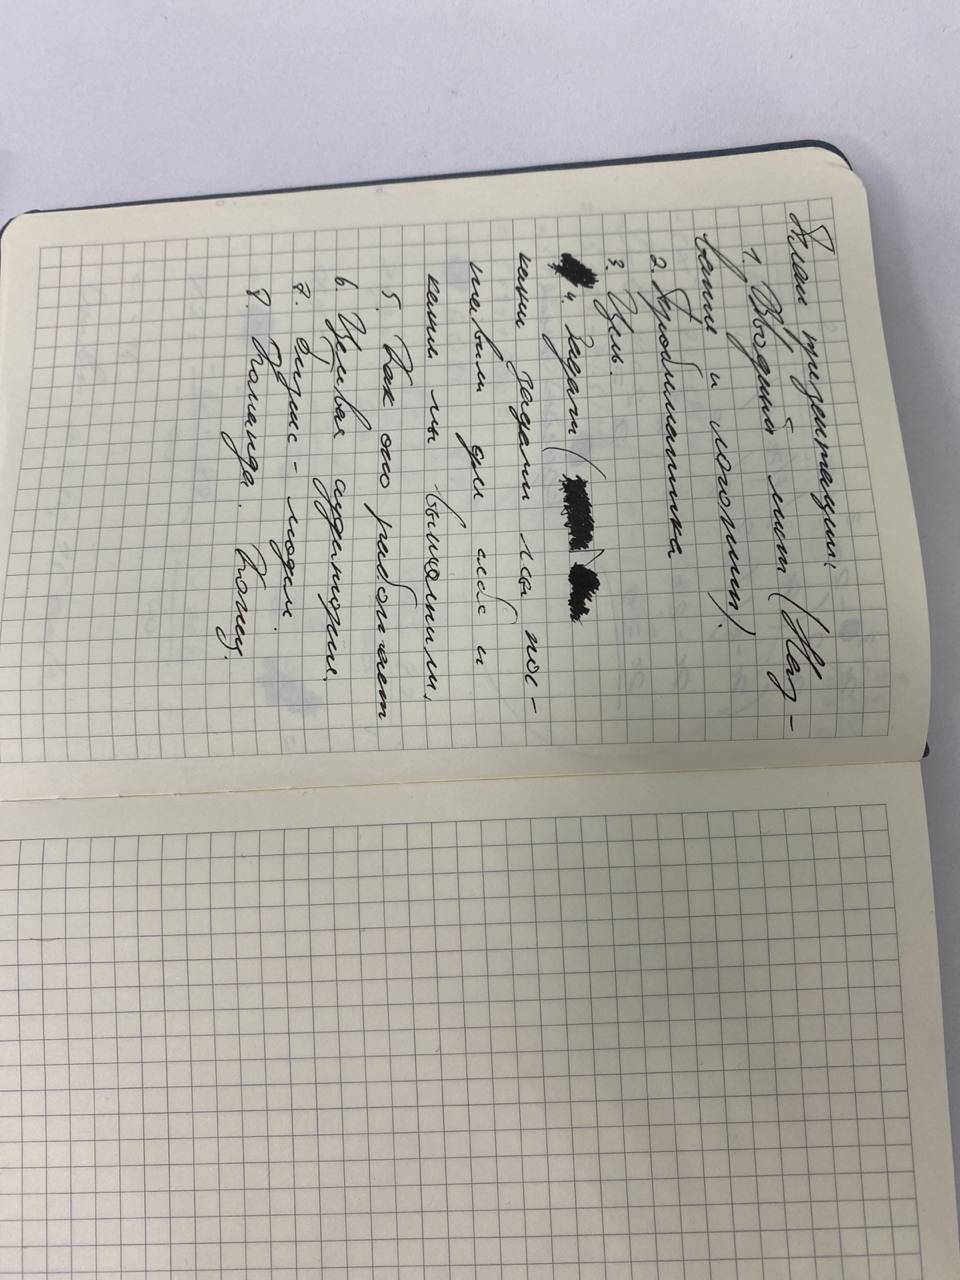 План презентации:
1. Вводный лист (Наз-
вание и логотип).
2. Проблематика
3. Цель.
4. Задачи (
какие задачи мы пос-
тавили для себя и
какие мы выполнили,
5. Как оно работает
6. Целевая аудитория.
7. бизнес-модель.
8. Команда. Конец.